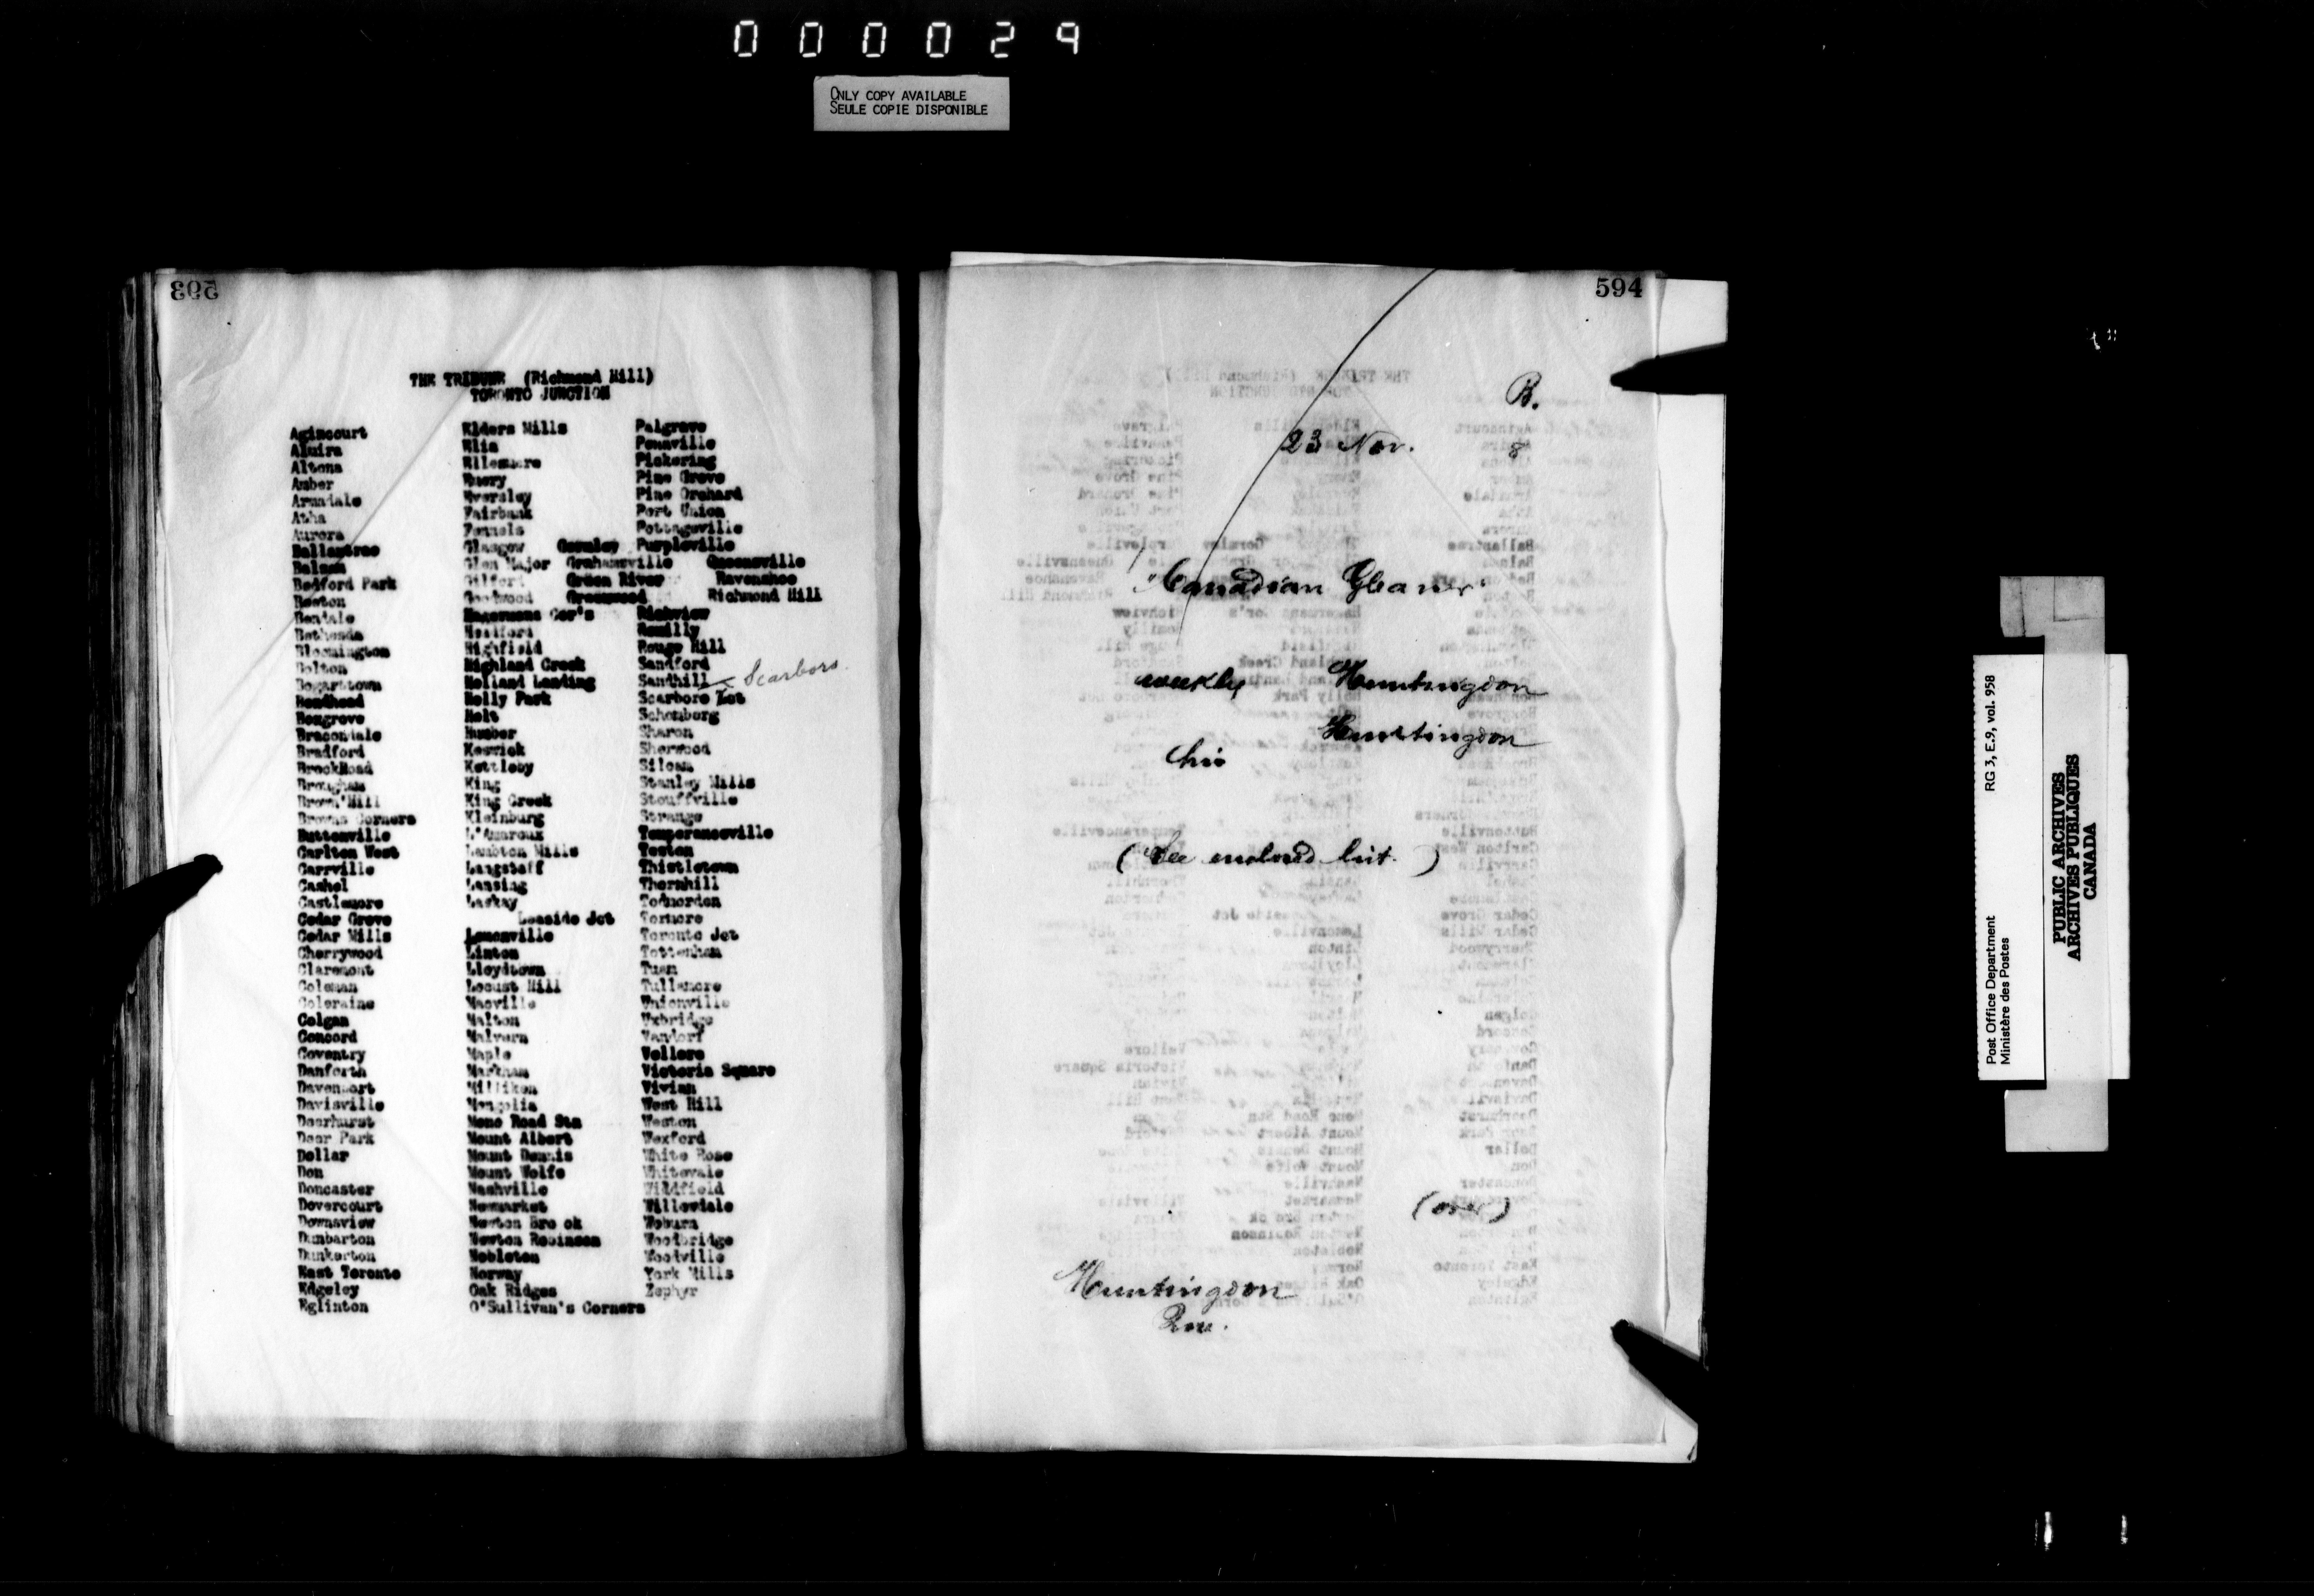 000029
ONLY COPY AVAILABLE
SEULE COPIE DISPONIBLE
593
THE TRIBUNE (Richmond Hill)
TORONTO JUNCTION
Agincourt
Almira
Altona
Amber
Armadale
Atha
Aurora
Ballantrae
Balsam
Bedford Park
Beeton
Bentale
Bethesda
Bloomington
Bolton
Bogarttown
Bondhead
Boxgrove
Bracondale
Bradford
BrockRoad
Brougham
Brown'Hill
Browns Corners
Buttonville
Carlton West
Carrville
Cashel
Castlemore
Cedar Grove
Cedar Mills
Cherrywood
Claremont
Coleman
Coleraine
Colgan
Concord
Coventry
Danforth
Davenport
Davisville
Deerhurst
Deer Park
Dollar
Don
Doncaster
Dovercourt
Downsview
Dunbarton
Dunkerton
East Toronto
Edgeley
Eglinton
Elders Mills
Elia
Ellesmere
Emery
Eversley
Fairbank
Fennels
Glasgow Gormley
Glen Major Grahamsville
Gilford Green River
Goodwood Greenwood
Hagermans Cor's
Headford
Highfield
Highland Creek
Holland Landing
Holly Park
Holt
Humber
Keswick
Kettleby
King
King Creek
Kleinburg
L'Amaroux
Lambton Mills
Langstaff
Lansing
Laskay
Leaside Jct
Lemonville
Linton
Lloydtown
Locust Hill
Macville
Malton
Malvern
Maple
Markham
Milliken
Mongolia
Mono Road Stn
Mount Albert
Mount Dennis
Mount Wolfe
Nashville
Newmarket
Newton Bro ok
Newton Robinson
Nobleton
Norway
Oak Ridges
O'Sullivan's Corners
Palgrave
Pennville
Pickering
Pine Grove
Pine Orchard
Port Union
Pottageville
Purpleville
Queensville
Ravenshoe
Richmond Hill
Richview
Romilly
Rouge Hill
Sandford
Sandhill Scarboro
Scarboro Jct
Schomberg
Sharon
Sherwood
Siloam
Stanley Mills
Stouffville
Strange
Temperanceville
Teston
Thistletown
Thornhill
Todmorden
Tormore
Toronto Jct
Tottenham
Tuam
Tullamore
Unionville
Uxbridge
Vandorf
Vellore
Victoria Square
Vivian
West Hill
Weston
Wexford
White Rose
Whitevale
Wildfield
Willowdale
Woburn
Woodbridge
Woodville
York Mills
Zephyr
594
B.
23 Nov. 8
"Canadian Gleaner"
weekly Huntingdon
Huntingdon
his
(See enclosed list.)
(over)
Huntingdon
Que.
Post Office Department
Ministère des Postes
RG 3, E.9, vol. 958
PUBLIC ARCHIVES
ARCHIVES PUBLIQUES
CANADA